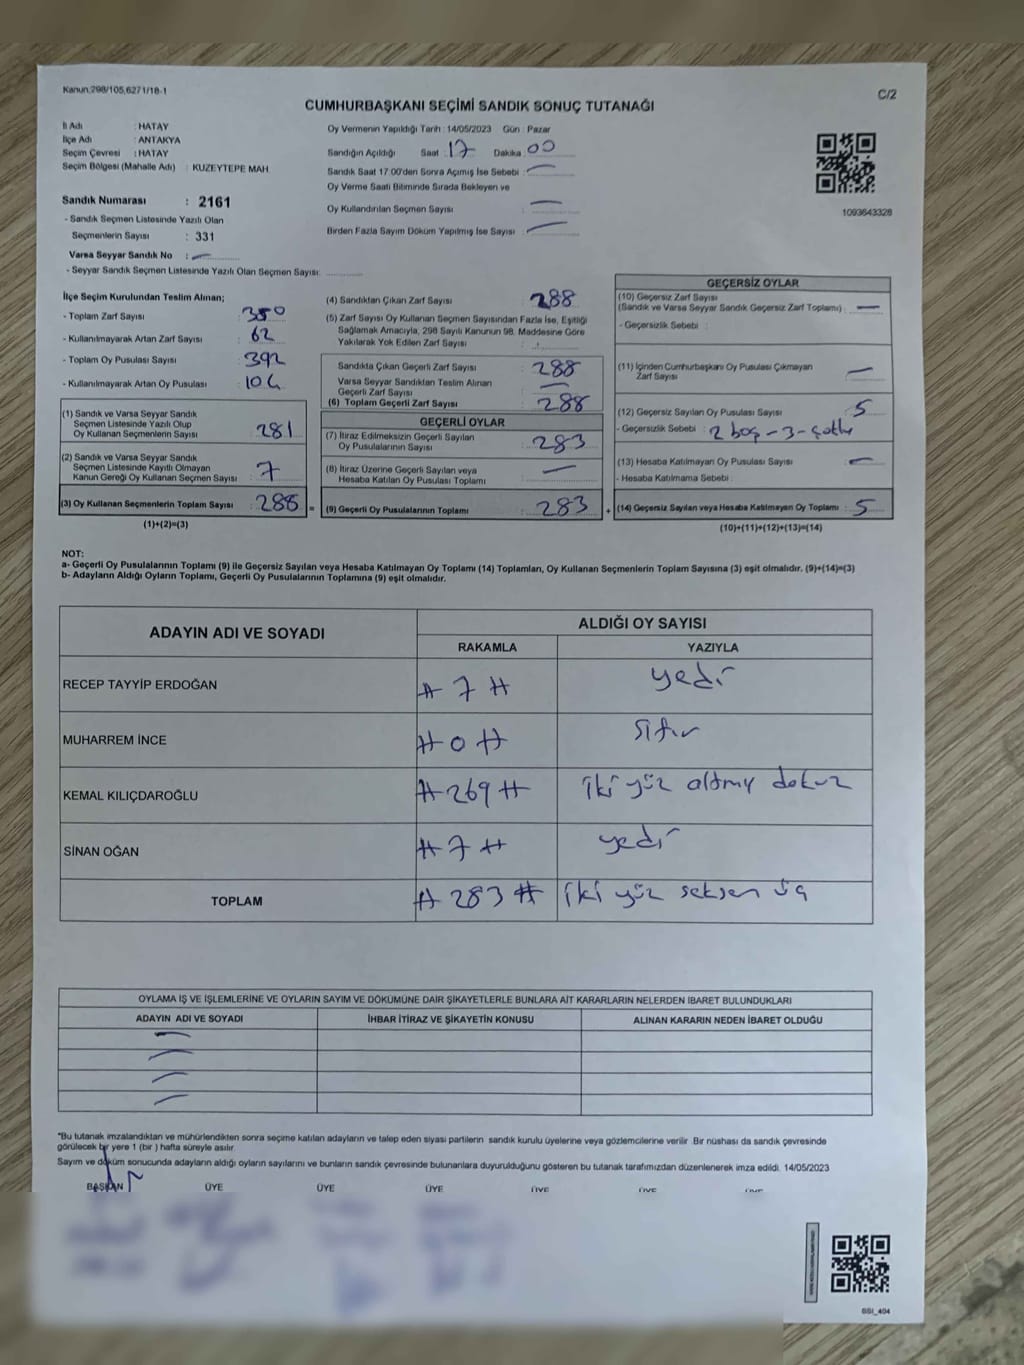 Kanun:298/105,6271/18-1
C/2
CUMHURBAŞKANI SEÇİMİ SANDIK SONUÇ TUTANAĞI
İl Adı : HATAY
İlçe Adı : ANTAKYA
Seçim Çevresi : HATAY
Seçim Bölgesi (Mahalle Adı) : KUZEYTEPE MAH
Sandık Numarası : 2161
- Sandık Seçmen Listesinde Yazılı Olan
Seçmenlerin Sayısı : 331
Varsa Seyyar Sandık No :
- Seyyar Sandık Seçmen Listesinde Yazılı Olan Seçmen Sayısı:
Oy Vermenin Yapıldığı Tarih : 14/05/2023 Gün : Pazar
Sandığın Açıldığı Saat : 17 Dakika : 00
Sandık Saat 17:00'den Sonra Açımış İse Sebebi :
Oy Verme Saati Bitiminde Sırada Bekleyen ve
Oy Kullandırılan Seçmen Sayısı :
Birden Fazla Sayım Döküm Yapılmış İse Sayısı :
1093643328
İlçe Seçim Kurulundan Teslim Alınan;
- Toplam Zarf Sayısı : 350
- Kullanılmayarak Artan Zarf Sayısı : 62
- Toplam Oy Pusulası Sayısı : 392
- Kullanılmayarak Artan Oy Pusulası : 104
(1) Sandık ve Varsa Seyyar Sandık
Seçmen Listesinde Yazılı Olup
Oy Kullanan Seçmenlerin Sayısı : 281
(2) Sandık ve Varsa Seyyar Sandık
Seçmen Listesinde Kayıtlı Olmayan
Kanun Gereği Oy Kullanan Seçmen Sayısı : 7
(3) Oy Kullanan Seçmenlerin Toplam Sayısı : 288 =
(1)+(2)=(3)
(4) Sandıktan Çıkan Zarf Sayısı : 288
(5) Zarf Sayısı Oy Kullanan Seçmen Sayısından Fazla İse, Eşitliği
Sağlamak Amacıyla, 298 Sayılı Kanunun 98. Maddesine Göre
Yakılarak Yok Edilen Zarf Sayısı :
Sandıkta Çıkan Geçerli Zarf Sayısı : 288
Varsa Seyyar Sandıktan Teslim Alınan
Geçerli Zarf Sayısı :
(6) Toplam Geçerli Zarf Sayısı : 288
GEÇERLİ OYLAR
(7) İtiraz Edilmeksizin Geçerli Sayılan
Oy Pusulalarının Sayısı : 283
(8) İtiraz Üzerine Geçerli Sayılan veya
Hesaba Katılan Oy Pusulası Toplamı :
(9) Geçerli Oy Pusulalarının Toplamı : 283 +
GEÇERSİZ OYLAR
(10) Geçersiz Zarf Sayısı
(Sandık ve Varsa Seyyar Sandık Geçersiz Zarf Toplamı) :
- Geçersizlik Sebebi :
(11) İçinden Cumhurbaşkanı Oy Pusulası Çıkmayan
Zarf Sayısı :
(12) Geçersiz Sayılan Oy Pusulası Sayısı : 5
- Geçersizlik Sebebi : 2 boş - 3 -
(13) Hesaba Katılmayan Oy Pusulası Sayısı :
- Hesaba Katılmama Sebebi :
(14) Geçersiz Sayılan veya Hesaba Katılmayan Oy Toplamı : 5
(10)+(11)+(12)+(13)=(14)
NOT:
a- Geçerli Oy Pusulalarının Toplamı (9) ile Geçersiz Sayılan veya Hesaba Katılmayan Oy Toplamı (14) Toplamları, Oy Kullanan Seçmenlerin Toplam Sayısına (3) eşit olmalıdır. (9)+(14)=(3)
b- Adayların Aldığı Oyların Toplamı, Geçerli Oy Pusulalarının Toplamına (9) eşit olmalıdır.
ADAYIN ADI VE SOYADI ALDIĞI OY SAYISI
RAKAMLA YAZIYLA
RECEP TAYYİP ERDOĞAN # 7 # yedi
MUHARREM İNCE # 0 # sıfır
KEMAL KILIÇDAROĞLU # 269 # iki yüz altmış dokuz
SİNAN OĞAN # 7 # yedi
TOPLAM # 283 # iki yüz seksen üç
OYLAMA İŞ VE İŞLEMLERİNE VE OYLARIN SAYIM VE DÖKÜMÜNE DAİR ŞİKAYETLERLE BUNLARA AİT KARARLARIN NELERDEN İBARET BULUNDUKLARI
ADAYIN ADI VE SOYADI İHBAR İTİRAZ VE ŞİKAYETİN KONUSU ALINAN KARARIN NEDEN İBARET OLDUĞU
"Bu tutanak imzalandıktan ve mühürlendikten sonra seçime katılan adayların ve talep eden siyasi partilerin sandık kurulu üyelerine veya gözlemcilerine verilir .Bir nüshası da sandık çevresinde
görülecek bir yere 1 (bir ) hafta süreyle asılır.
Sayım ve döküm sonucunda adayların aldığı oyların sayılarını ve bunların sandık çevresinde bulunanlara duyurulduğunu gösteren bu tutanak tarafımızdan düzenlenerek imza edildi. 14/05/2023
BAŞKAN ÜYE ÜYE ÜYE ÜYE ÜYE
SSI_404